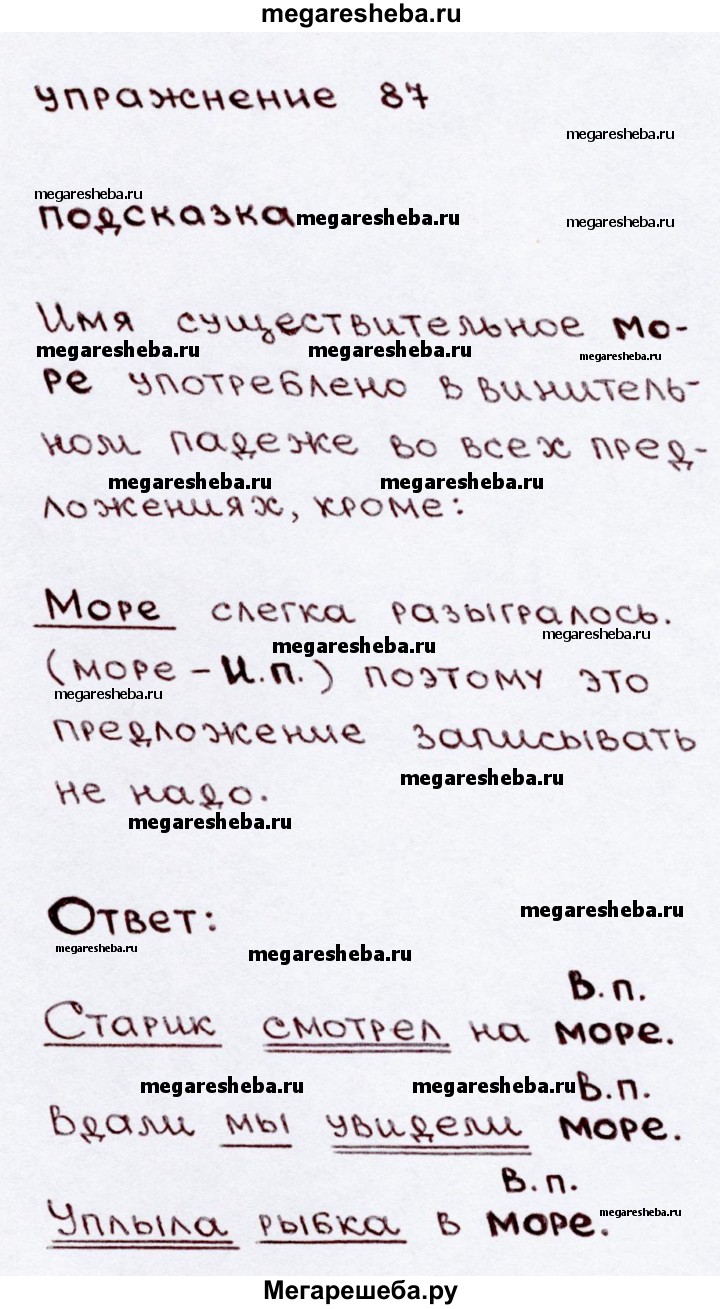 megaresheba.ru
упражнение 87
megaresheba.ru
megaresheba.ru
подсказка megaresheba.ru megaresheba.ru
Имя существительное мо-
megaresheba.ru megaresheba.ru megaresheba.ru
ре употреблено в винитель-
ном падеже во всех пред-
megaresheba.ru megaresheba.ru
ложениях, кроме:
Море слегка разыгралось.
megaresheba.ru megaresheba.ru
(море - И.п.) поэтому это
megaresheba.ru
предложение записывать
megaresheba.ru
не надо.
megaresheba.ru
Ответ: megaresheba.ru
megaresheba.ru megaresheba.ru
В.п.
Старик смотрел на море.
megaresheba.ru megaresheba.ru В.п.
Вдали мы увидели море.
В.п.
Уплыла рыбка в море. megaresheba.ru
Мегарешеба.ру